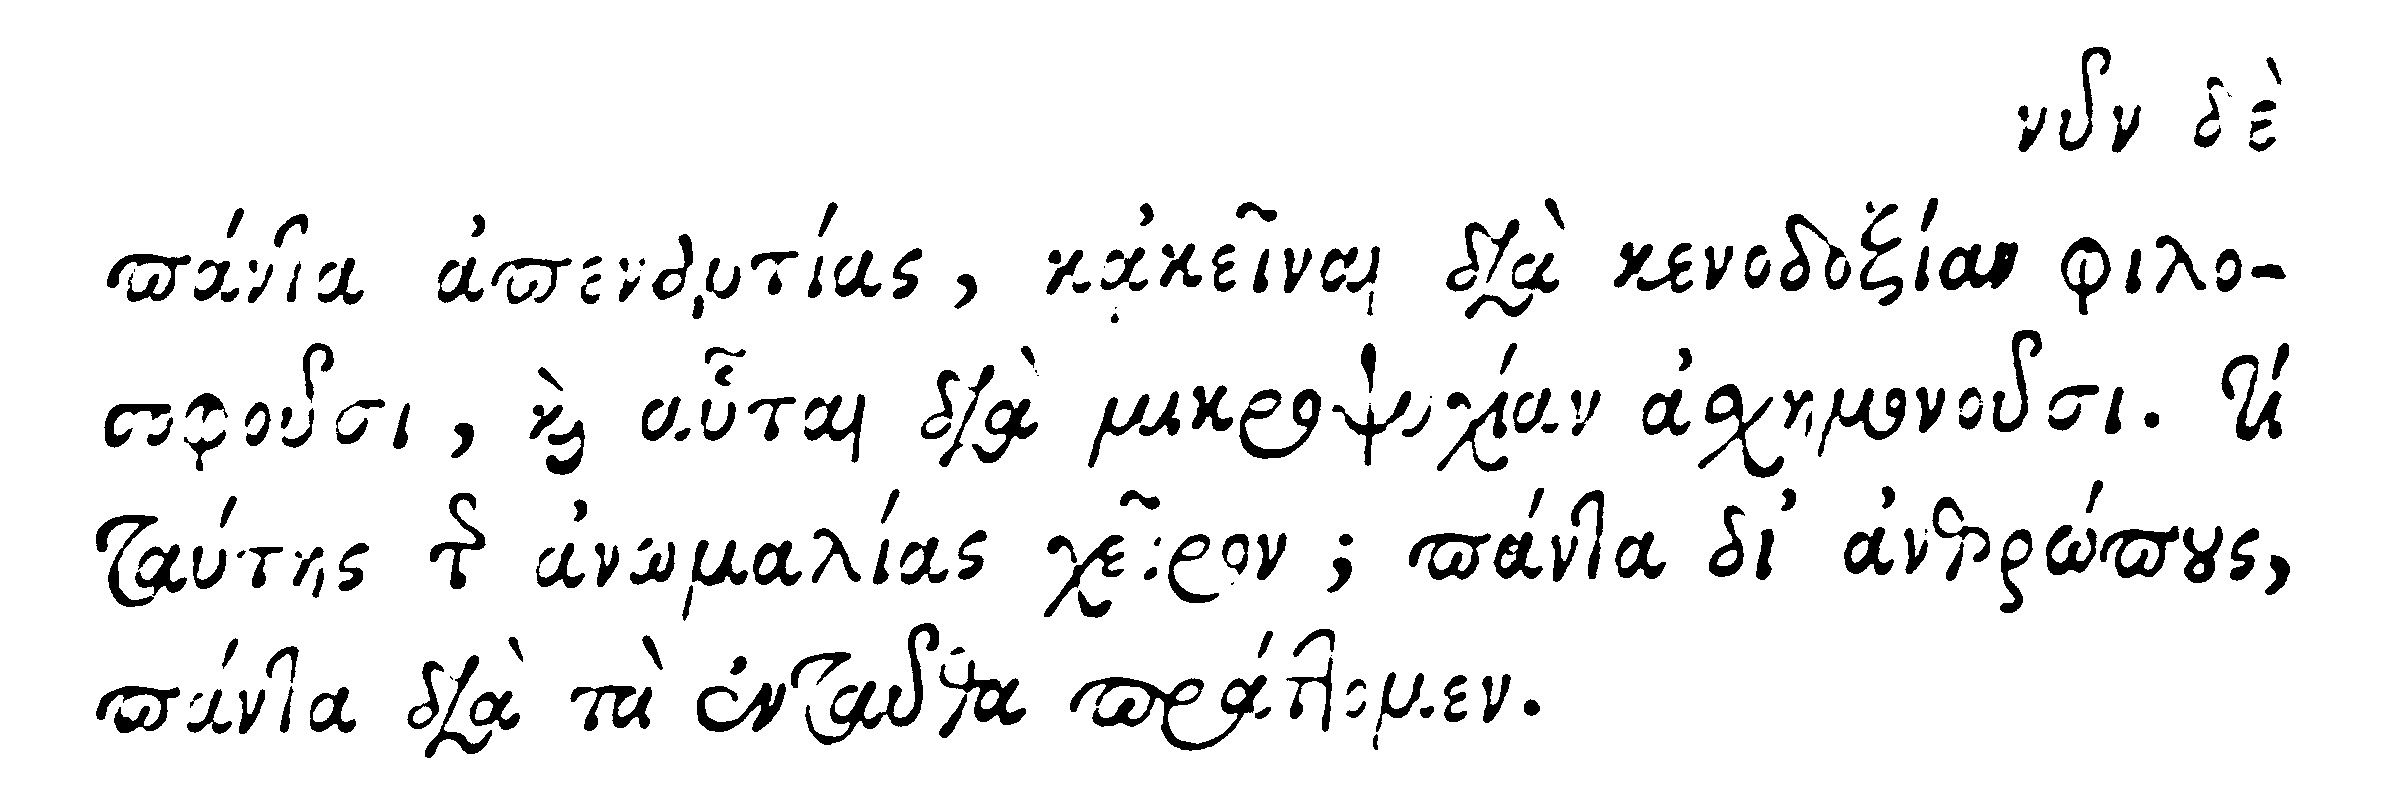 νῦν δὲ
πάντα ἀπεναντίας, κἀκεῖναι διὰ κενοδοξίαν φιλο-
σοφοῦσι, καὶ αὗται διὰ μικροψυχίαν ἀσχημονοῦσι. τί
ταύτης τῆς ἀνωμαλίας χεῖρον; πάντα δι᾽ ἀνθρώπους,
πάντα διὰ τὰ ἐνταῦθα πράττομεν.